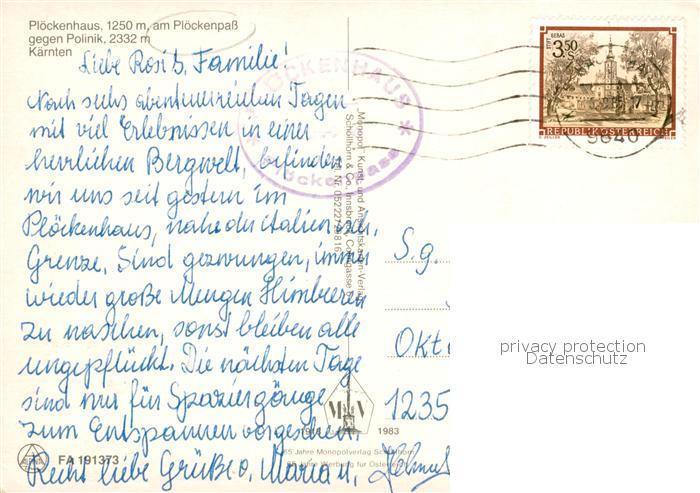 Plöckenhaus, 1250 m, am Plöckenpaß
gegen Polinik, 2332 m
Kärnten
Liebe Rosi u. Familie!
Nach sechs abenteuerreichen Tagen
mit viel Erlebnissen in einer
herrlichen Bergwelt, befinden
wir uns seit gestern im
Plöckenhaus, nahe der italienisch.
Grenze. Sind gezwungen, immer
wieder große Mengen Himbeeren
zu naschen, sonst bleiben alle
ungepflückt. Die nächsten Tage
sind nur für Spaziergänge
zum Entspannen vorgesehen.
Recht liebe Grüße v. Maria u. Helmut
FA 191373
PLÖCKENHAUS
Plöckenpass
Monopol: Kunst- und Ansichtskarten-Verlag
Schöllhorn & Co., Innsbruck
MV
1983
65 Jahre Monopolverlag Schöllhorn
65 Jahre Werbung für Österreich
STIFT GERAS
3.50
S
REPUBLIK ÖSTERREICH
9640
S.g.
Okt
1235
privacy protection
Datenschutz